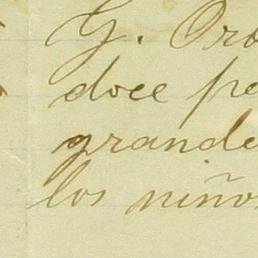 G. Oro
doce pe
grande
los niños